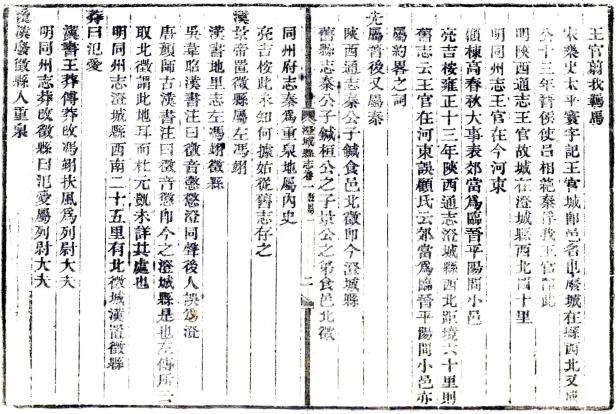 王官翦我羈馬
宋樂史太平寰宇記王官城郇邑名也廢城在縣西北又成
公十三年晉侯使呂相絕秦俘我王官在此
明陝西通志王官故城在澄城縣西北四十里
明同州志王官在今河東
顧棟高春秋大事表郊當爲臨晉平陽間小邑
亮吉桉雍正十三年陝西通志澄城縣西北距境六十里則
舊志云王官在河東誤顧氏云郊當爲臨晉平陽間小邑亦
屬約畧之詞
先屬晉後又屬秦
陝西通志秦公子鍼食邑北徵卽今澄城縣
舊縣志秦公子鍼桓公之子景公之弟食邑北徵
澄城縣志卷一
二
同州府志秦爲重泉地屬內史
亮吉桉此未知何據姑從舊志存之
漢景帝置徵縣屬左馮翊
漢書地里志左馮翊徵縣
吳韋昭漢書注曰徵音懲懲澄同聲後人誤爲澄
唐顏師古漢書注曰徵音懲卽今之澄城縣是也左傳所云
取北徵謂此地耳而杜元凱未詳其處也
明同州志澄城縣西南二十五里有北徵城漢置徵縣
莽曰氾愛
漢書王莽傳莽改馮翊扶風爲列尉大夫
明同州志莽改徵縣曰氾愛屬列尉大夫
後漢廢徵縣入重泉